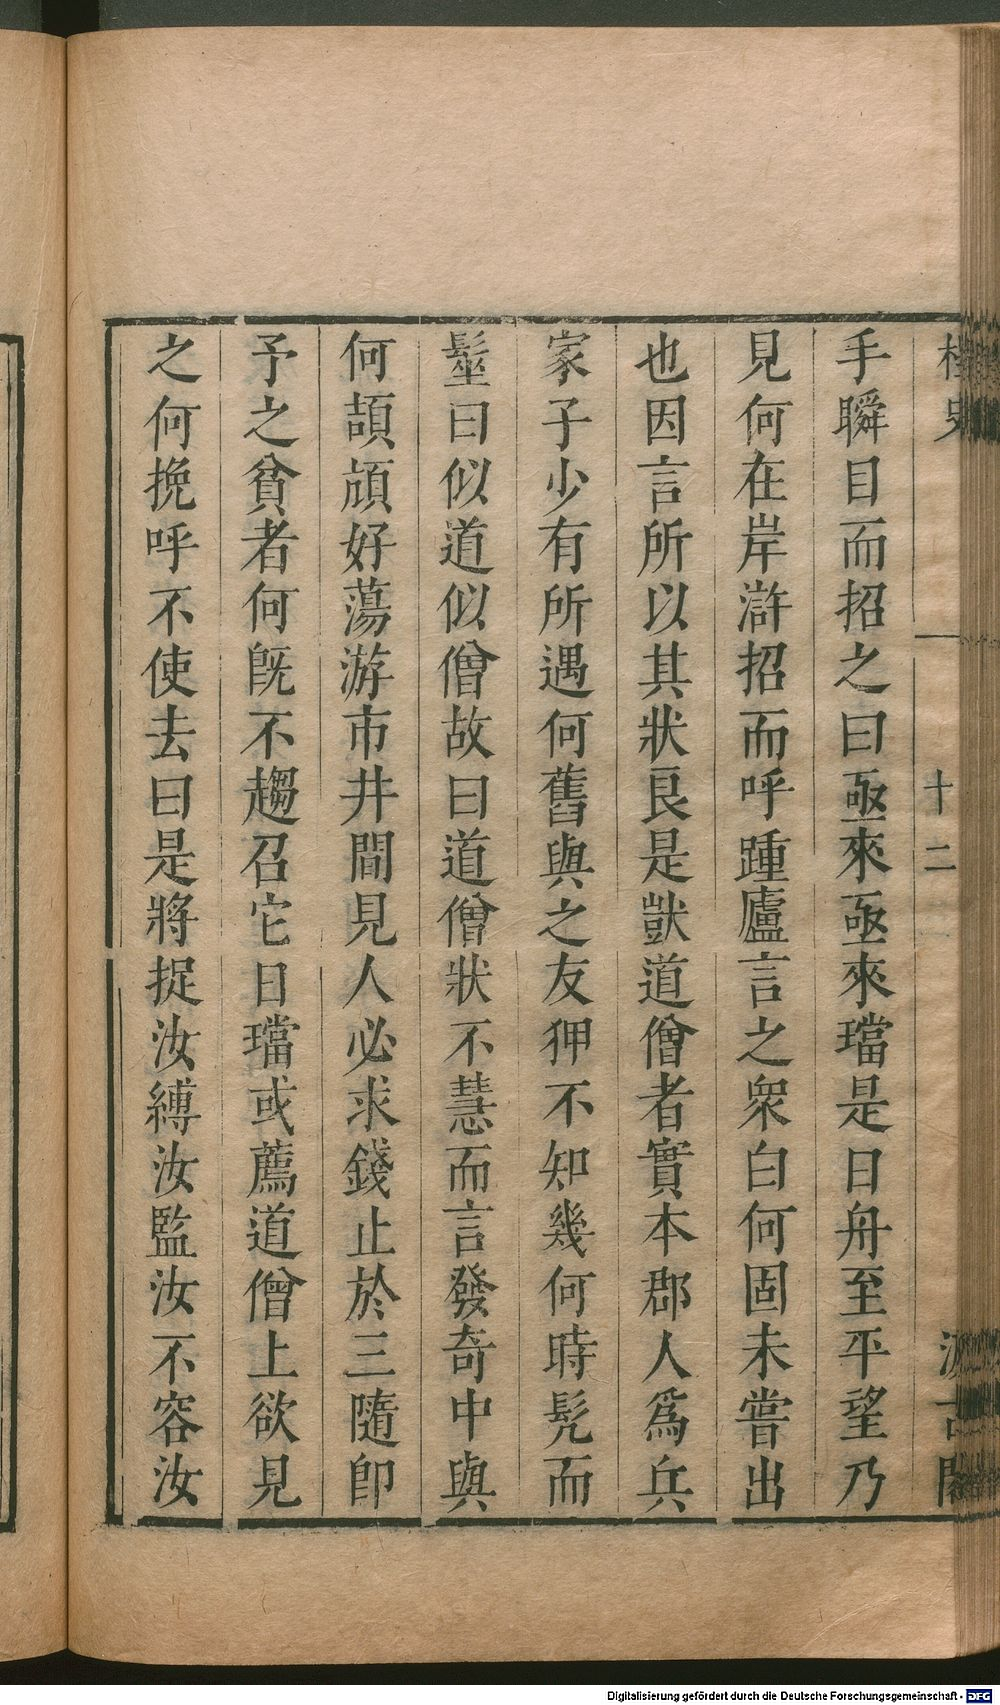 桯史
十二
汲古閣
手瞬目而招之曰亟來亟來璫是日舟至平望乃
見何在岸滸招而呼踵廬言之衆白何固未嘗出
也因言所以其狀良是獃道僧者實本郡人爲兵
家子少有所遇何舊與之友狎不知幾何時髠而
髽曰似道似僧故曰道僧狀不慧而言發奇中與
何頡頏好蕩游市井間見人必求錢止於三隨即
予之貧者何旣不趨召它日璫或薦道僧上欲見
之何挽呼不使去曰是將捉汝縛汝監汝不容汝
Digitalisierung gefördert durch die Deutsche Forschungsgemeinschaft - DFG